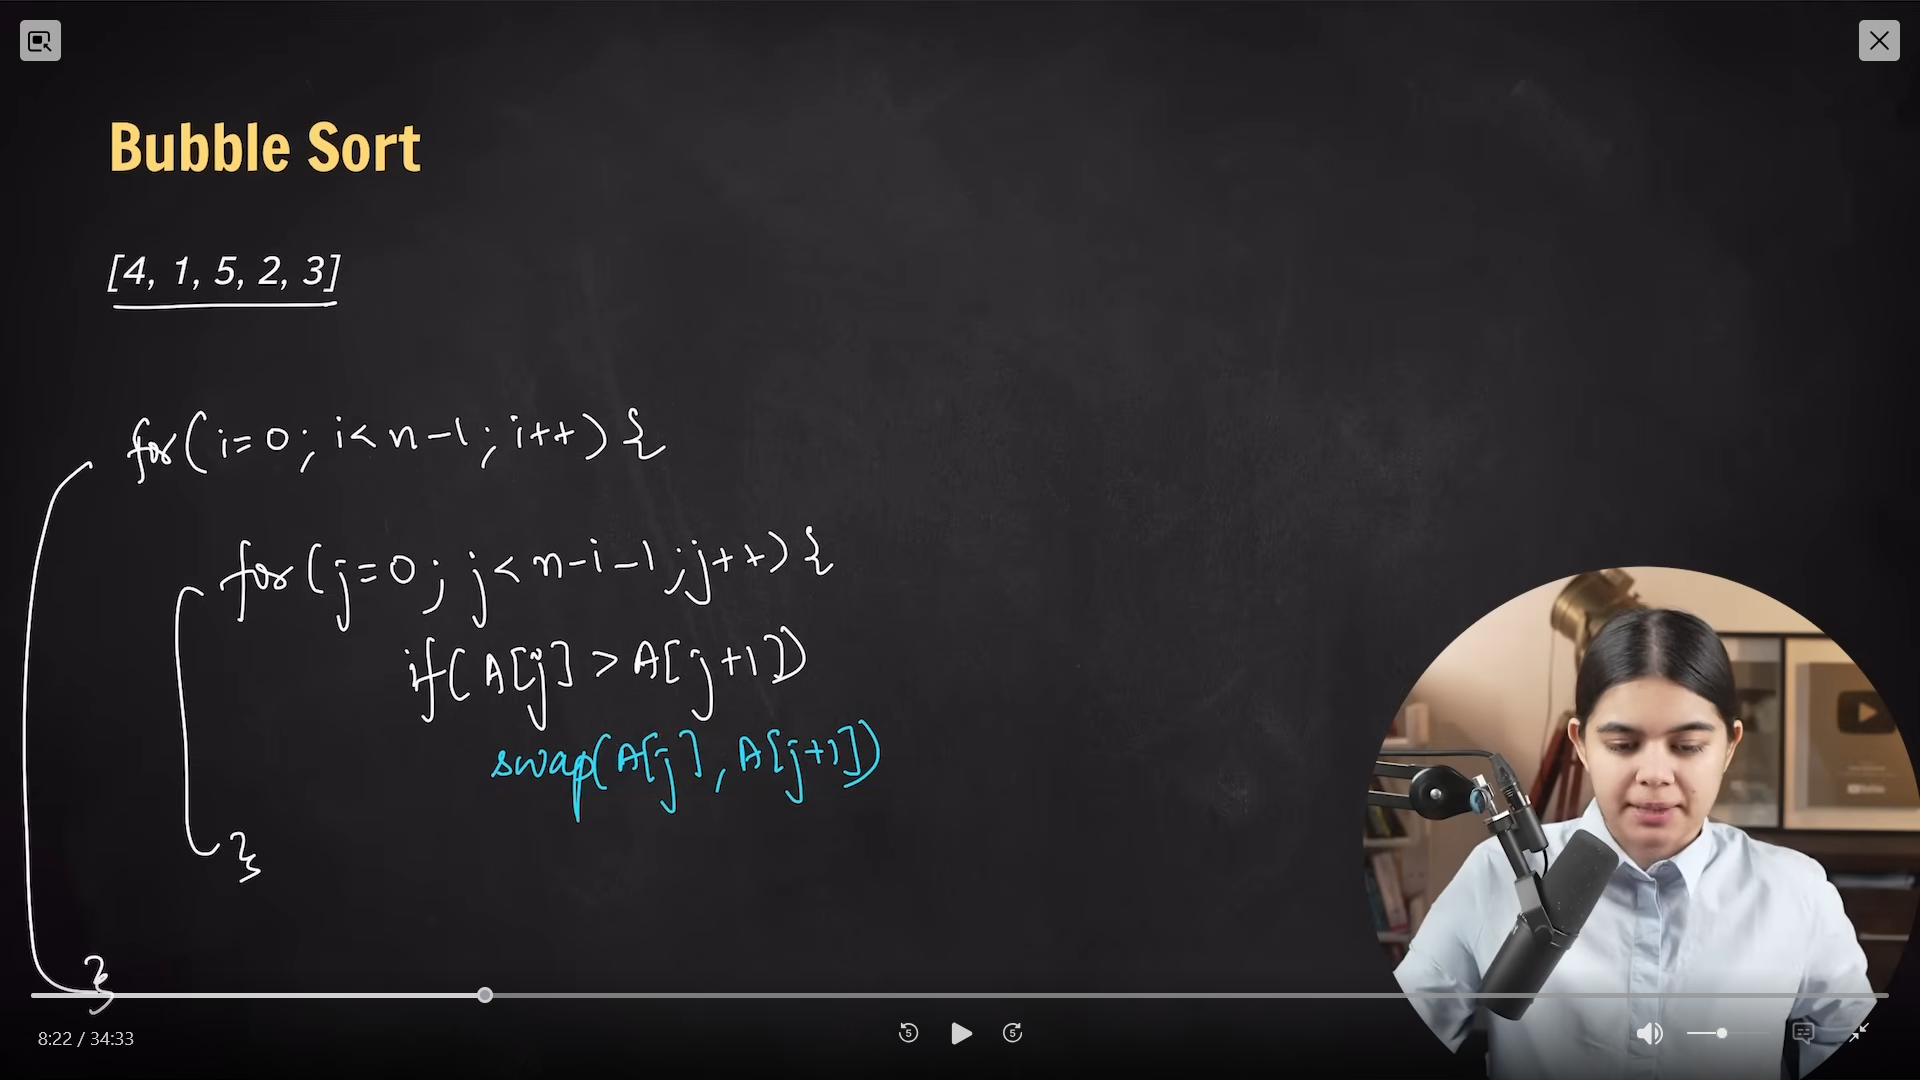 Bubble Sort
[4, 1, 5, 2, 3]
for(i=0; i<n-1; i++){
for(j=0; j<n-i-1; j++){
if(A[j]>A[j+1])
swap(A[j], A[j+1])
}
}
8:22 / 34:33
5
5